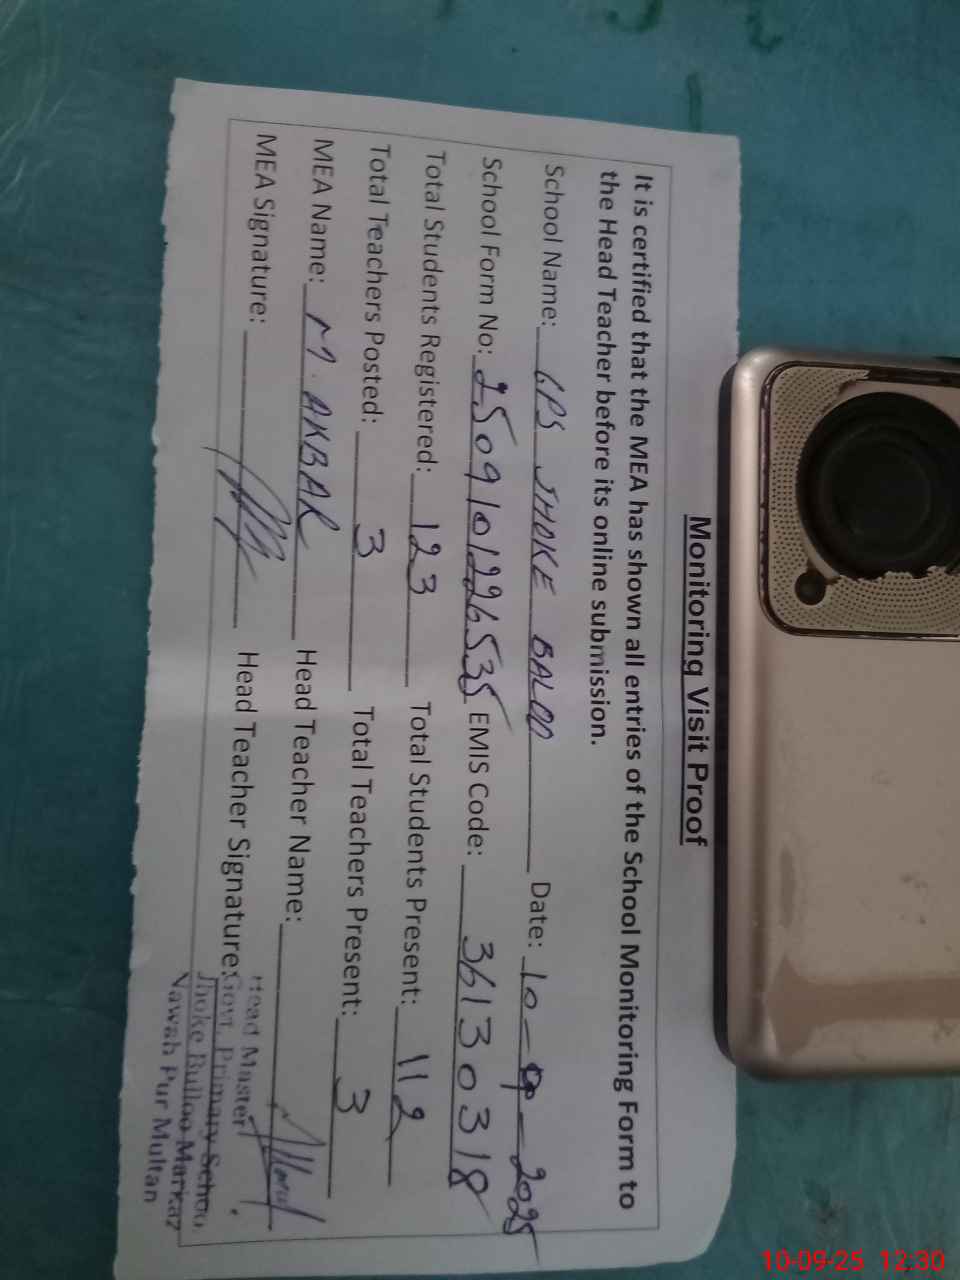 Monitoring Visit Proof
It is certified that the MEA has shown all entries of the School Monitoring Form to
the Head Teacher before its online submission.
School Name: GPS JHOKE BALOO Date: 10-9-2025
School Form No: 2509101226535 EMIS Code: 36130318
Total Students Registered: 123 Total Students Present: 112
Total Teachers Posted: 3 Total Teachers Present: 3
MEA Name: M. AKBAR Head Teacher Name:
MEA Signature: Head Teacher Signature:
Head Master
Govt. Primary School
Jhoke Bulloo Markaz
Nawab Pur Multan
10-09-25 12:30